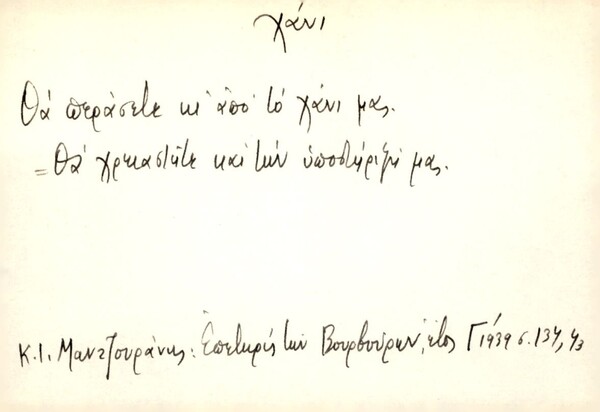 χάνι
Θά περάσετε κι' ἀπό τό χάνι μας.
= Θά χρειαστῆτε καί τήν ὑποστήριξή μας.
Κ.Ι. Μαντζουράνης: Ἐπετηρίς τῶν Βουρβούρων, ἔτος Γ' 1939 σ. 134,